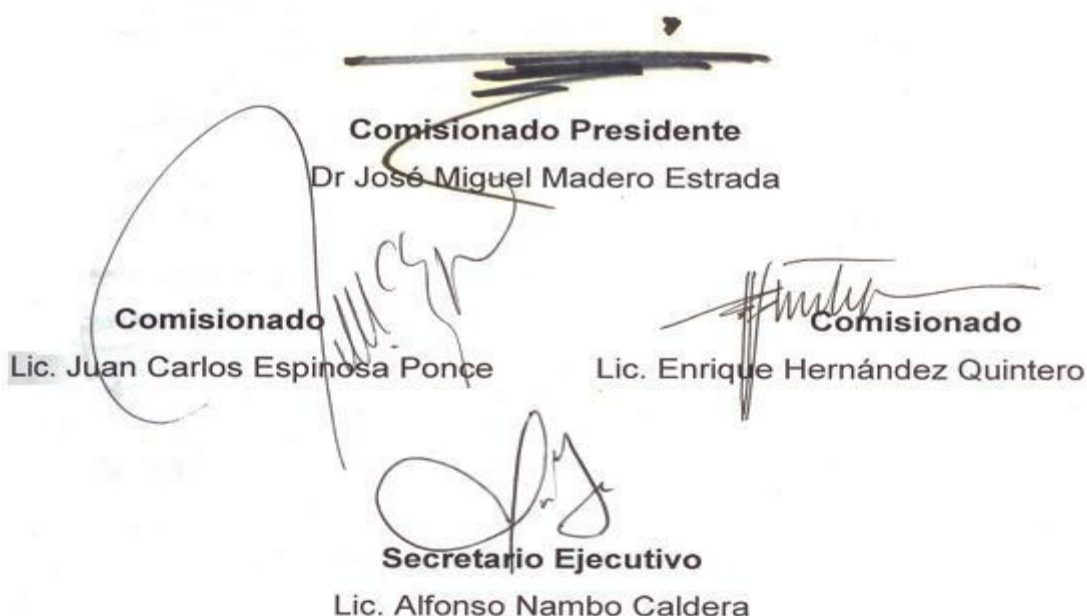 Comisionado Presidente
Dr José Miguel Madero Estrada
Comisionado
Lic. Juan Carlos Espinosa Ponce
Comisionado
Lic. Enrique Hernández Quintero
Secretario Ejecutivo
Lic. Alfonso Nambo Caldera